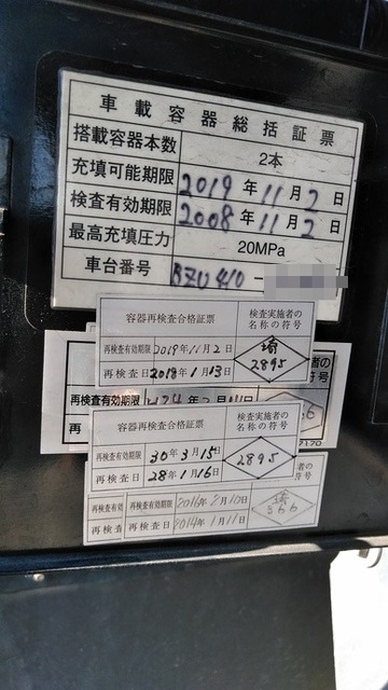 車載容器総括証票
搭載容器本数 2本
充填可能期限 2019年11月2日
検査有効期限 2008年11月2日
最高充填圧力 20MPa
車台番号 BZU410-
容器再検査合格証票 検査実施者の名称の符号
再検査有効期限 2019年11月2日
再検査日 2018年1月13日
埼 2895
者の
号
再検査有効期限
再
7170
容器再検査合格証票 検査実施者の名称の符号
再検査有効期限 30年3月15日
再検査日 28年1月16日
2895
者の
符号
再検査有効 再検査有効期限 2016年2月10日
再検査 再検査日 2014年1月11日
埼 366